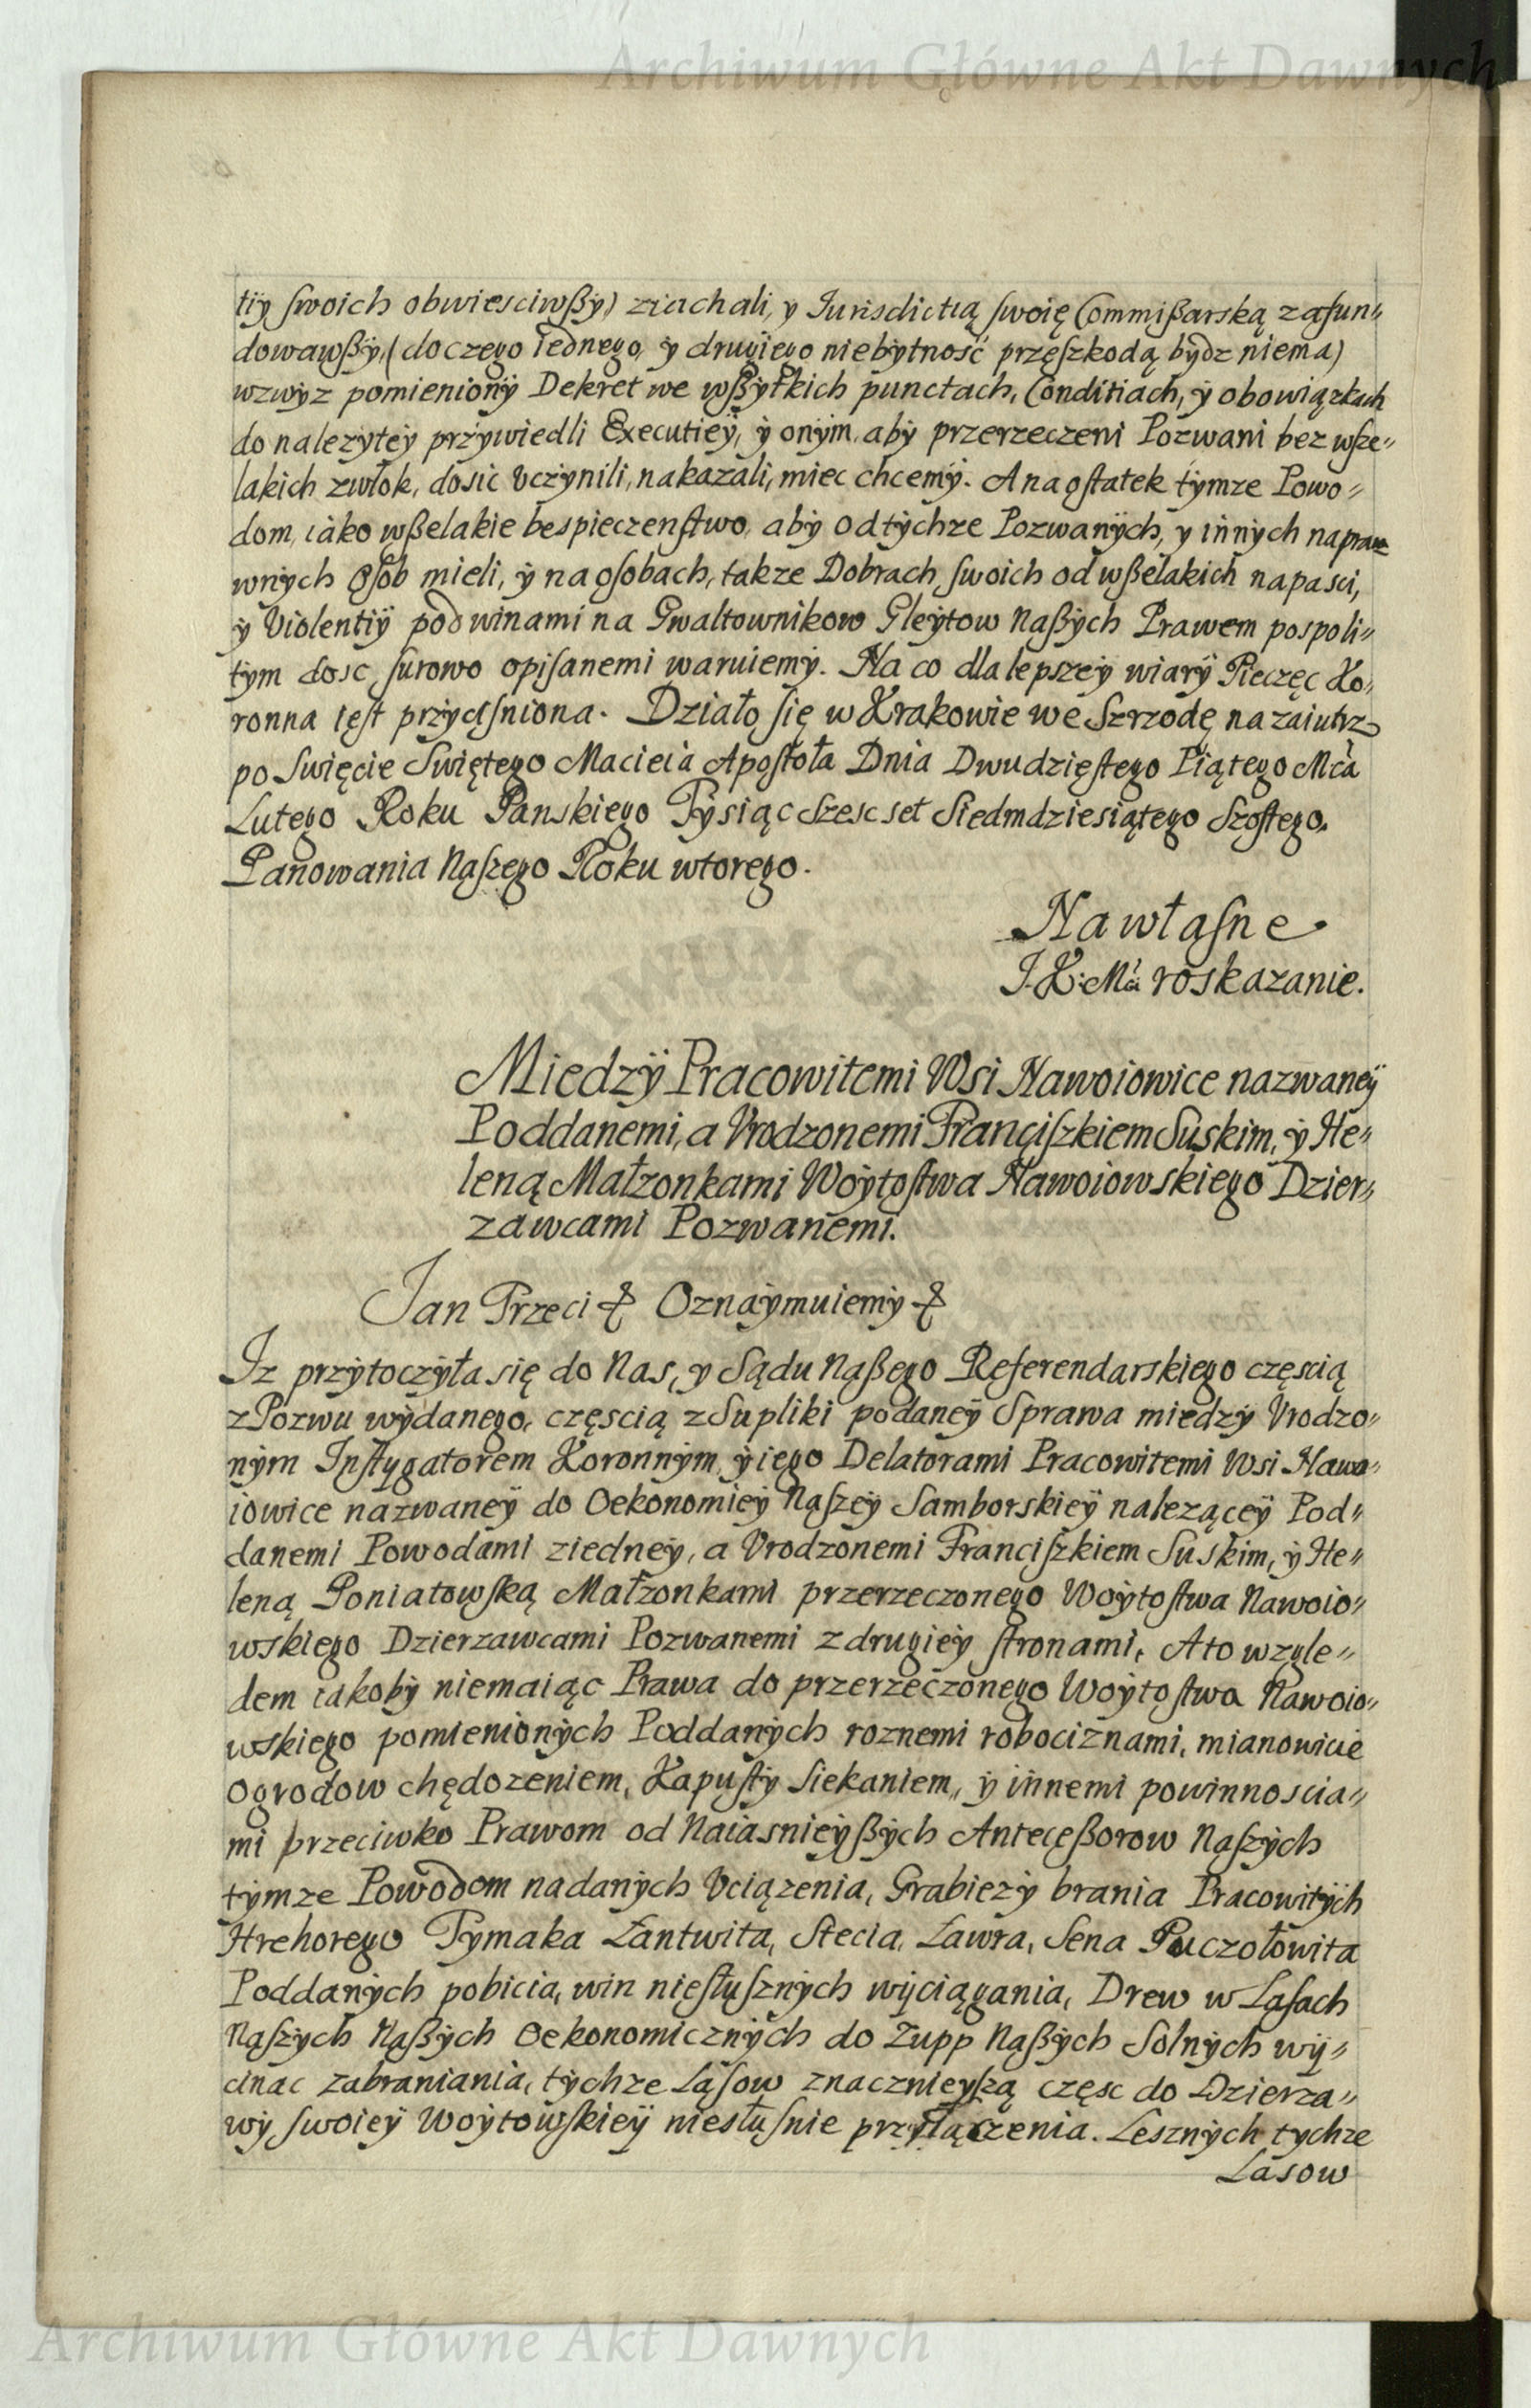 Archiwum Główne Akt Dawnych
tiÿ ſwoich obwiesciwßÿ) ziachali, y Jurisdictią ſwoię Commißarską zafun„
dowawßÿ, (do czego iednego, ÿ drugiego niebÿtność przeſzkodą bÿdz niema)
wzwÿz pomienionÿ Dekret we wßÿtkich punctach, Conditiach, ÿ obowiązkach
do nalezÿteÿ przÿwiedli Executieÿ, ÿ onÿm, abÿ przerzeczeni Pozwani bez wſze„
lakich zwłok, dosic vczÿnili, nakazali, miec chcemÿ. A na oſtatek tÿmze Powo„
dom, iako wßelakie bespieczenſtwo, abÿ od tÿchze Pozwanÿch, y innÿch napraw
wnÿch Oſob mieli, ÿ na oſobach, takze Dobrach ſwoich od wßelakich napasci,
ÿ Violentiÿ pod winami na Gwaltownikow Gleÿtow Naßÿch Prawem pospoli„
tÿm dosc ſurowo opiſanemi waruiemÿ. Na co dla lepszeÿ wiarÿ Pieczęc Ko„
ronna ieſt przÿciſniona. Działo ſię w Krakowie we Szrzodę nazaiutrz
po Swięcie Swiętego Macieia Apoſtoła Dnia Dwudzieſtego Piątego Mca
Lutego Roku Panskiego Tÿsiąc Szesc set Siedmdziesiątego Szoſtego.
Panowania Naſzego Roku wtorego.
Na właſne
J. K: Mći roskazanie.
Miedzÿ Pracowitemi Wsi Nawoiowice nazwaneÿ
Poddanemi, a Vrodzonemi Franciſzkiem Suskim, ÿ He„
leną Małzonkami Woÿtoſtwa Nawoiowskiego Dzier„
zawcami Pozwanemi.
Jan Trzeci & Oznaÿmuiemÿ &
Iz przÿtoczÿła się do Nas, y Sądu Naßego Referendarskiego częscią
z Pozwu wÿdanego, częscią z Supliki podaneÿ Sprawa miedzÿ Vrodzo„
nÿm Inſtygatorem Koronnÿm, ÿ iego Delatorami Pracowitemi Wsi Nawo„
iowice nazwaneÿ do Oekonomieÿ Naſzeÿ Samborskieÿ naleząceÿ Pod„
danemi Powodami z iedneÿ, a Vrodzonemi Franciſzkiem Suskim, ÿ He„
leną Poniatowſką Małzonkami przerzeczonego Woÿtoſtwa Nawoio„
wskiego Dzierzawcami Pozwanemi z drugieÿ ſtronami, A to wzglę„
dem iakobÿ niemaiąc Prawa do przerzeczonego Woÿtoſtwa Nawoio„
wskiego pomienionÿch Poddanÿch roznemi robociznami, mianowicie
Ogrodow chędozeniem, Kapuſtÿ Siekaniem, ÿ innemi powinnoscia„
mi przeciwko Prawom od Naiasnieÿßÿch Anteceßorow Naſzÿch
tÿmze Powodom nadanÿch Vciązenia, Grabiezÿ brania Pracowitÿch
Hrehorego Tymaka Łantwita, Stecia, Ławra, Sena Puczołowita
Poddanÿch pobicia, win nieſłuſznÿch wÿciągania, Drew w Laſach
Naſzÿch Naßÿch Oekonomicznÿch do Zupp Naßÿch Solnÿch wÿ„
cinac zabraniania, tÿchze Laſow znacznieyſzą częsc do Dzierza„
wÿ ſwoieÿ Woÿtowſkieÿ niesłuſnie przÿłączenia. Lesznÿch tychze
Lasow
Archiwum Główne Akt Dawnych